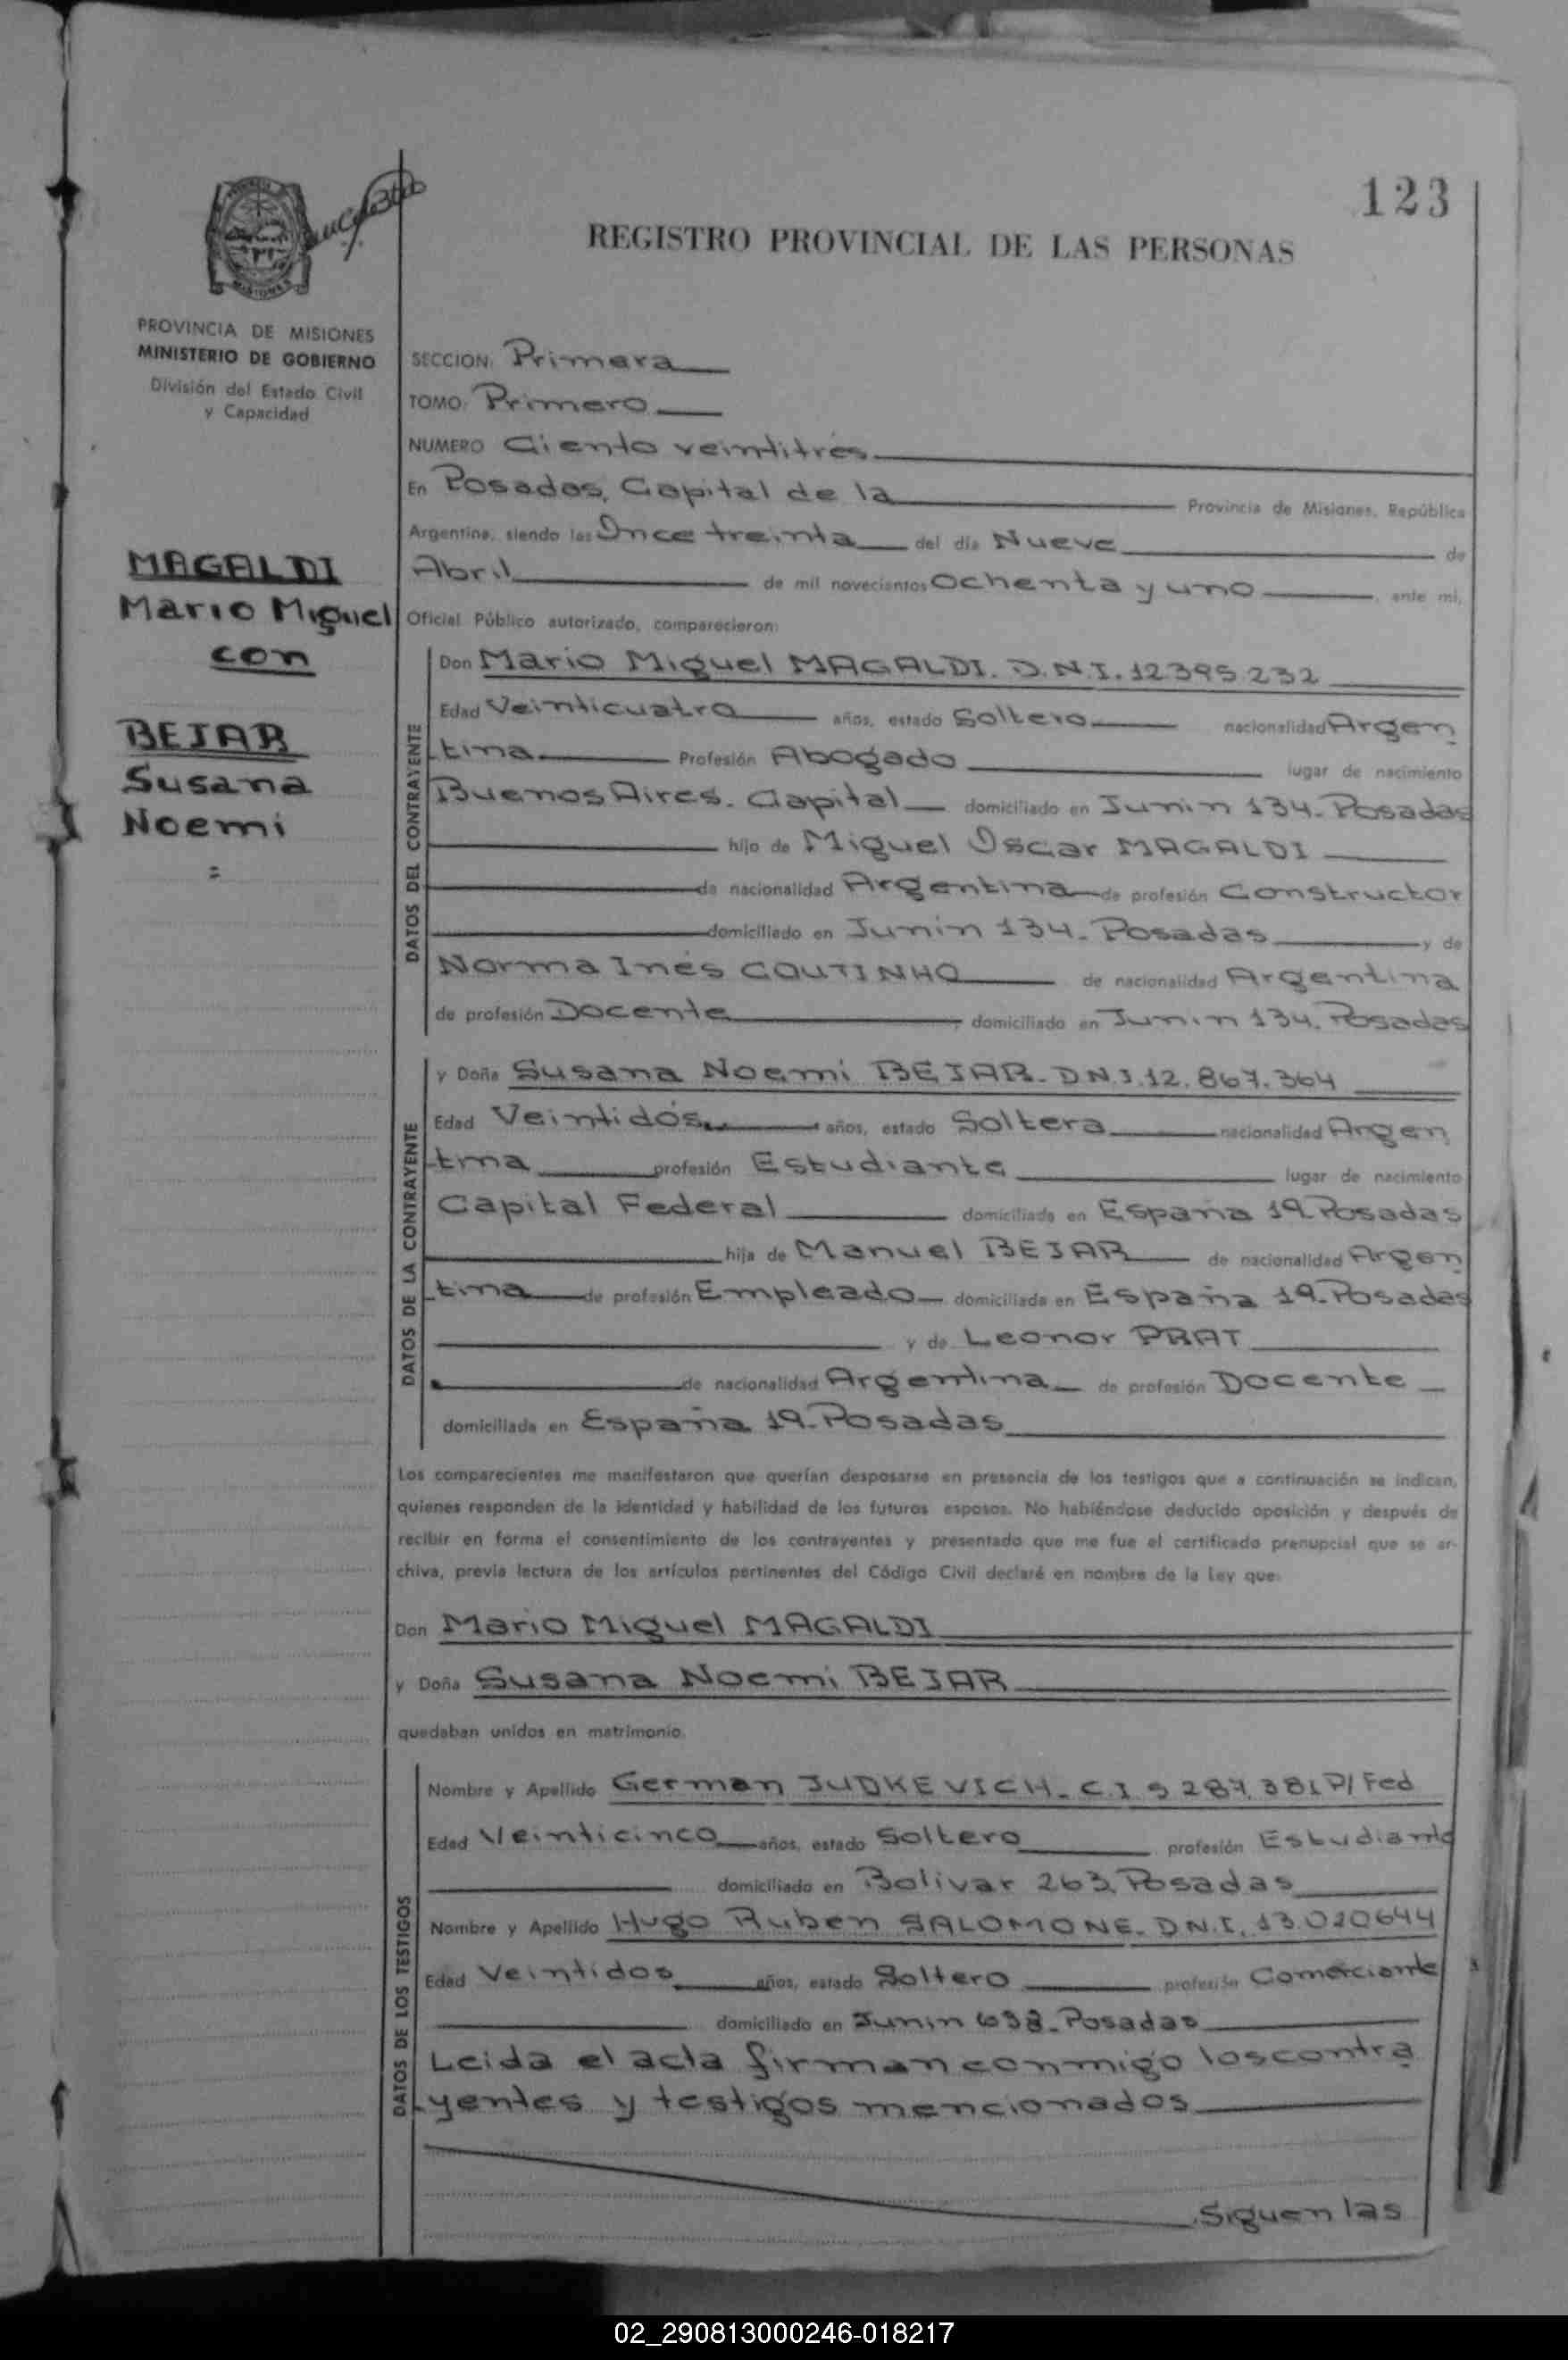 123
REGISTRO PROVINCIAL DE LAS PERSONAS
PROVINCIA DE MISIONES
MINISTERIO DE GOBIERNO
División del Estado Civil
y Capacidad
MAGALDI
Mario Miguel
con
BEJAR
Susana
Noemi
=
SECCION: Primera
TOMO: Primero
NUMERO Ciento veintitrés
En Posadas, Capital de la Provincia de Misiones, República
Argentina, siendo las Once treinta del día Nueve de
Abril de mil novecientos Ochenta y uno, ante mí,
Oficial Público autorizado, comparecieron:
DATOS DEL CONTRAYENTE
Don Mario Miguel MAGALDI. D.N.I. 12395232
Edad Veinticuatro años, estado Soltero nacionalidad Argen
tina Profesión Abogado lugar de nacimiento
Buenos Aires. Capital domiciliado en Junin 134. Posadas
hijo de Miguel Oscar MAGALDI
de nacionalidad Argentina de profesión Constructor
domiciliado en Junin 134. Posadas y de
Norma Inés COUTINHO de nacionalidad Argentina
de profesión Docente, domiciliado en Junin 134. Posadas
DATOS DE LA CONTRAYENTE
y Doña Susana Noemi BEJAR. DNI. 12.867.364
Edad Veintidós años, estado Soltera nacionalidad Argen
tina profesión Estudiante lugar de nacimiento
Capital Federal domiciliada en España 19. Posadas
hija de Manuel BEJAR de nacionalidad Argen
tina de profesión Empleado domiciliada en España 19. Posadas
y de Leonor PRAT
de nacionalidad Argentina de profesión Docente
domiciliada en España 19. Posadas
Los comparecientes me manifestaron que querían desposarse en presencia de los testigos que a continuación se indican,
quienes responden de la identidad y habilidad de los futuros esposos. No habiéndose deducido oposición y después de
recibir en forma el consentimiento de los contrayentes y presentado que me fue el certificado prenupcial que se ar-
chiva, previa lectura de los artículos pertinentes del Código Civil declaré en nombre de la Ley que:
Don Mario Miguel MAGALDI
y Doña Susana Noemi BEJAR
quedaban unidos en matrimonio.
DATOS DE LOS TESTIGOS
Nombre y Apellido German JUDKEVICH. C.I. 5 287.381 P/Fed
Edad Veinticinco años, estado Soltero profesión Estudiante
domiciliado en Bolivar 263. Posadas
Nombre y Apellido Hugo Ruben SALOMONE. D.N.I. 13.020644
Edad Veintidos años, estado Soltero profesión Comerciante
domiciliado en Junin 638. Posadas
Leida el acta firman conmigo los contra
yentes y testigos mencionados
Siguen las
02_290813000246-018217